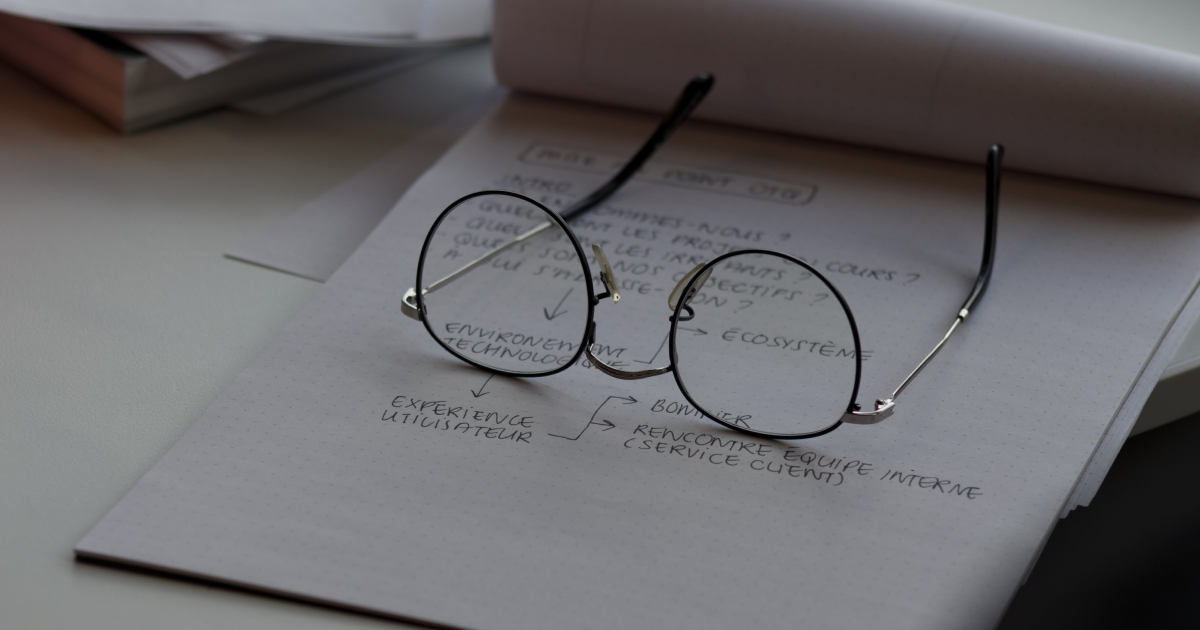 POINT
INTRO
SOMMES-NOUS ?
QUELS SONT LES PROJETS EN COURS ?
QUELS SONT LES IRRITANTS ?
QUELS SONT NOS OBJECTIFS ?
À QUI S'ADRESSE-T-ON ?
ENVIRONEMENT
TECHNOLOGIQUE
ÉCOSYSTÈME
EXPÉRIENCE
UTILISATEUR
RENCONTRE ÉQUIPE INTERNE
(SERVICE CLIENT)